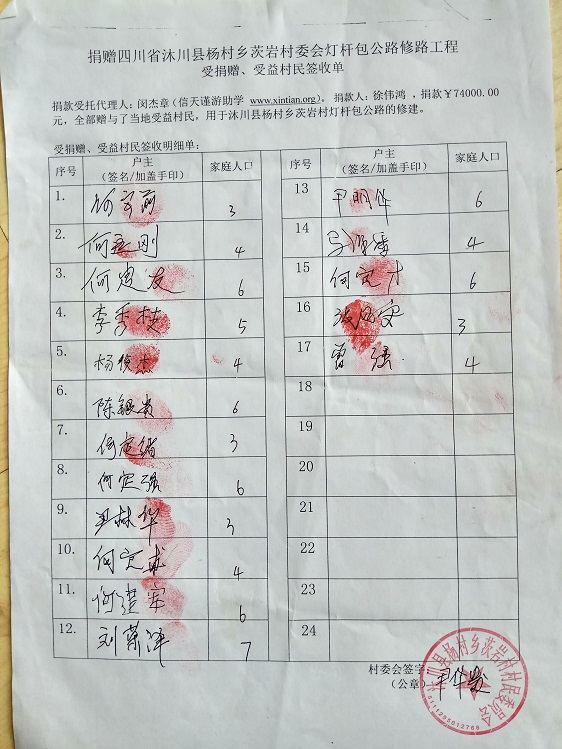 捐赠四川省沐川县杨村乡茨岩村委会灯杆包公路修路工程
受捐赠、受益村民签收单
捐款受托代理人：闵杰章（信天谨游助学 www.xintian.org），捐款人：徐伟鸿，捐款￥74000.00
元，全部赠与了当地受益村民，用于沐川县杨村乡茨岩村灯杆包公路的修建。
受捐赠、受益村民签收明细单：
序号 户主（签名/加盖手印） 家庭人口 序号 户主（签名/加盖手印） 家庭人口
1. 3 13 尹明华 6
2. 何 刚 4 14 4
3. 何建友 6 15 何定才 6
4. 李秀枝 5 16 3
5. 杨俊杰 4 17 曾强 4
6. 陈银贵 6 18
7. 何定 3 19
8. 何定强 6 20
9. 尹林华 3 21
10. 何定 4 22
11. 何 军 6 23
12. 刘 7 24
村委会签字：
（公章） 尹华
沐川县杨村乡茨岩村村民委员会